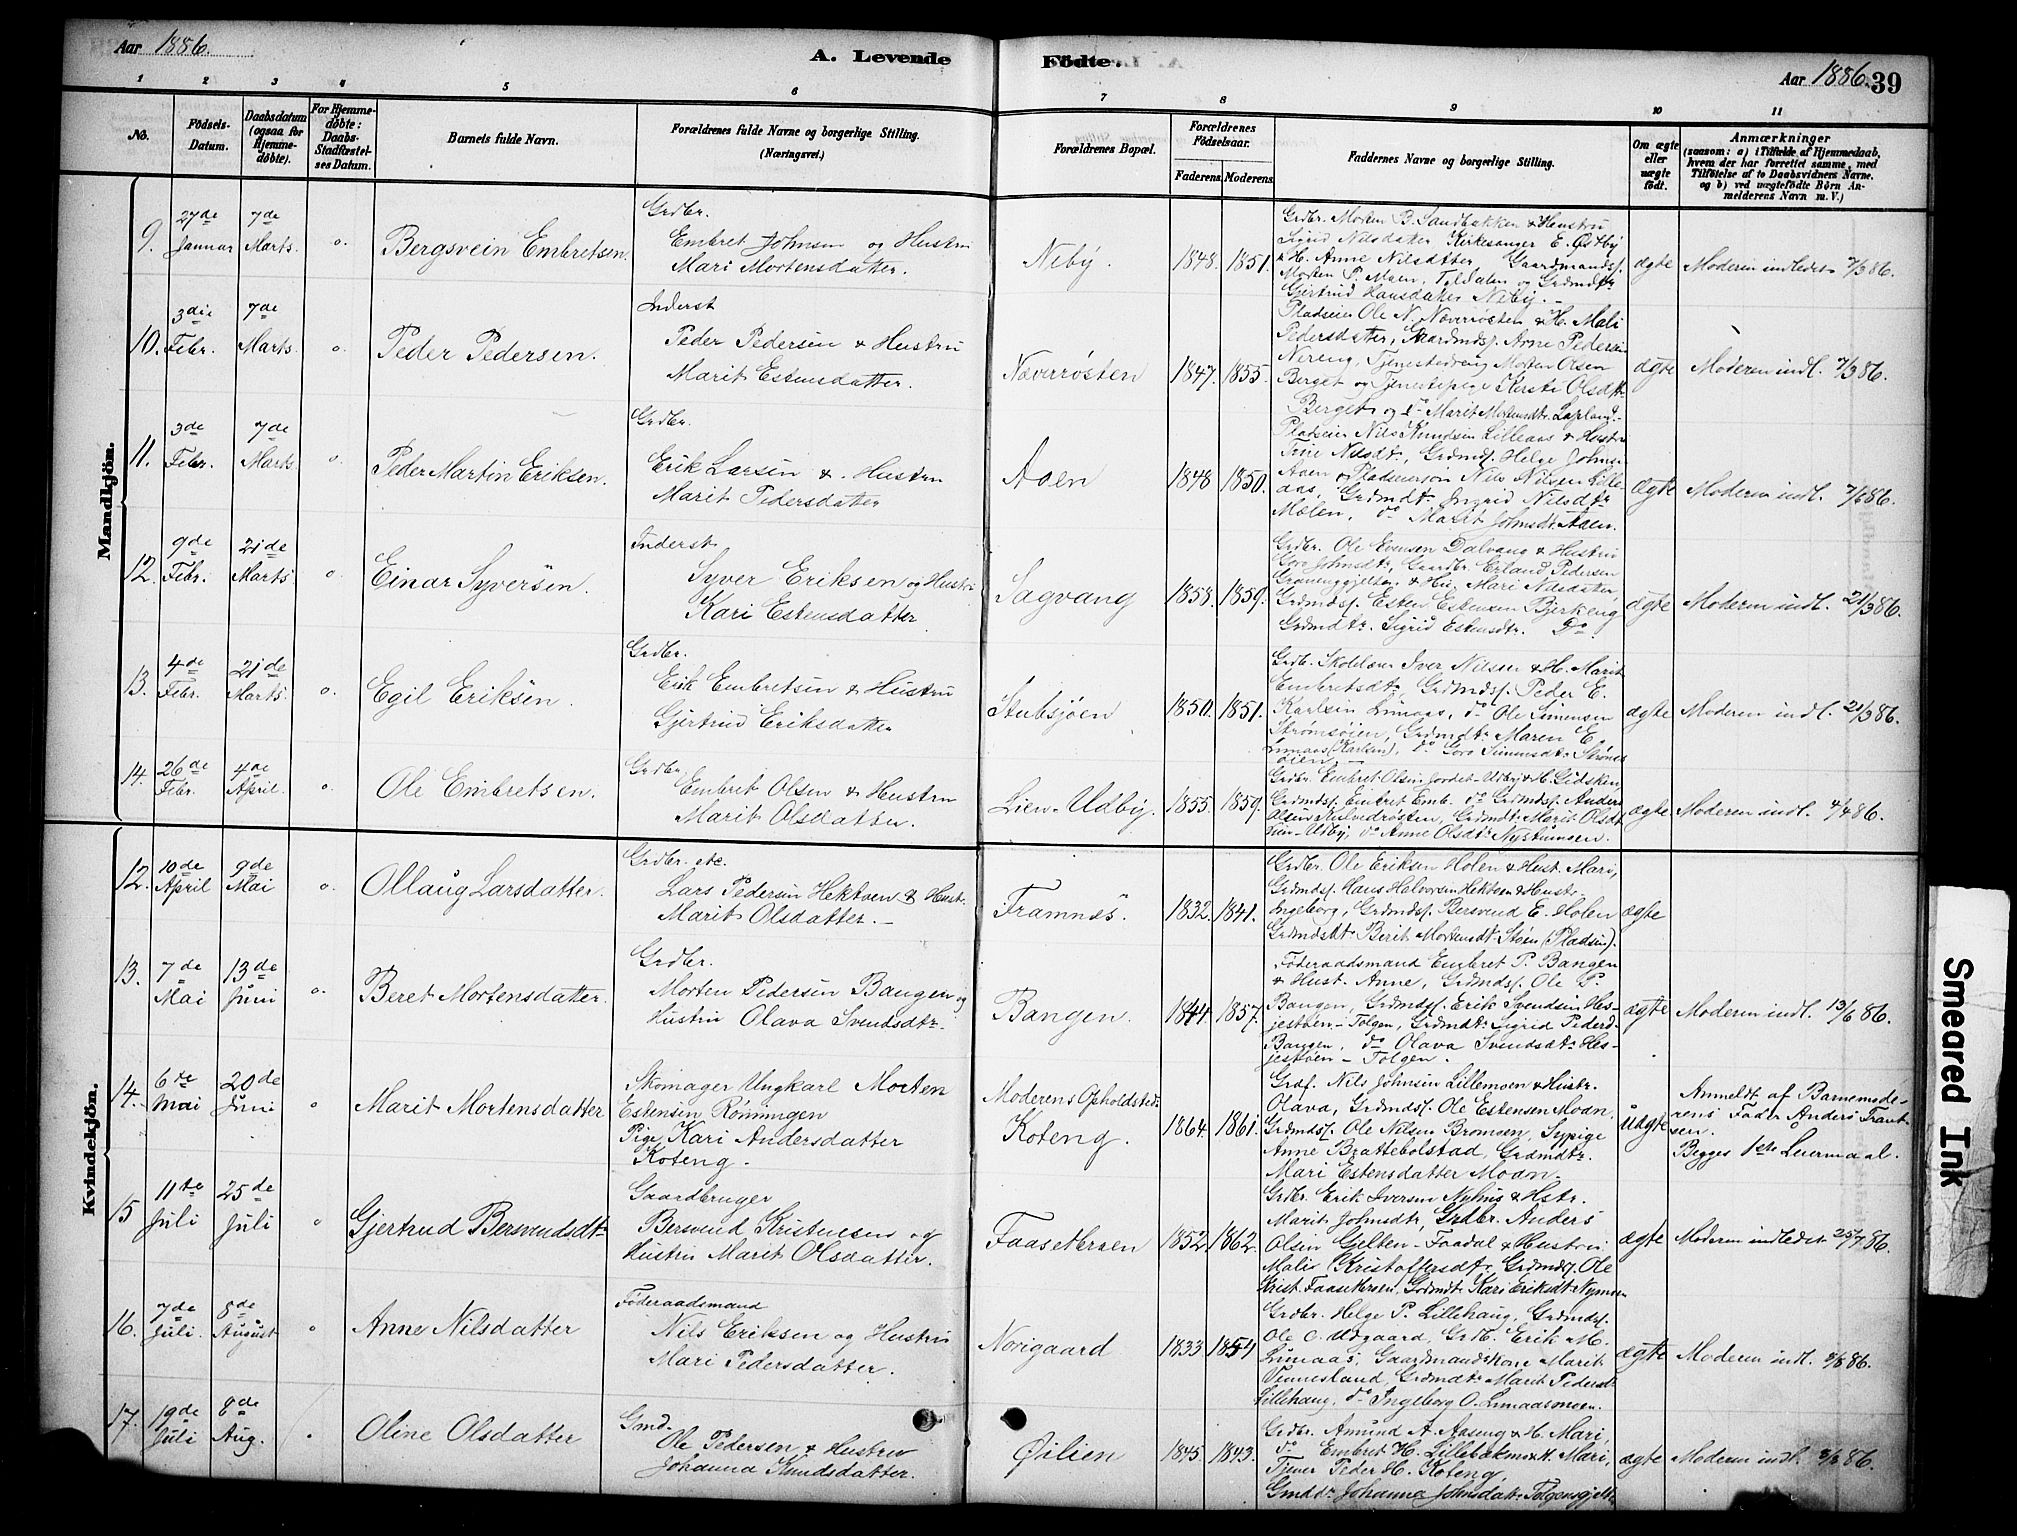 Aar 1886.
A. Levende
Födte.
Aar 1886. 39
1 2 3 4 5 6 7 8 9 10 11
No.
Födsels-Datum.
Daabsdatum (ogsaa for Hjemme-döbte).
For Hjemme-döbte: Daabs-Stadfæstel-ses Datum.
Barnets fulde Navn.
Forældrenes fulde Navne og borgerlige Stilling. (Næringsvei.)
Forældrenes Bopæl.
Forældrenes Födselsaar.
Faderens. Moderens.
Faddernes Navne og borgerlige Stilling.
Om ægte eller uægte födt.
Anmærkninger
(saasom: a) i Tilfælde af Hjemmedaab, hvem der har forrettet samme, med Tilföielse af to Daabsvidners Navne. og b) ved uægtefödte Börn An-melderens Navn m. V.)
Mandkjön.
9. 27de Januar 7de Marts. o. Bergsvein Embretsen.
Grdbr.
Embret Johnsen og Hustru
Mari Mortensdatter.
Neby. 1848. 1851.
Grdbr. Morten B. Sandbakken & Hustru
Sigrid Nilsdatter Kirkesanger E. Østby
& H. Anne Nilsdatter Gaardmandsf.
Morten P. Moen, Tyldalen og Grdmdtr
Gjertrud Hansdatter Neby.
ægte Moderen indledet 7/3 86.
10. 3die Febr. 7de Marts. o. Peder Pedersen.
Inderst
Peder Pedersen & Hustru
Marit Estensdatter.
Næverrösten 1847. 1855.
Pladseier Ole N. Næverrösten & H. Mali
Pedersdatter, Gaardmdsf. Arne Pedersen
Nereng, Tjenestedreng Morten Olsen
Berget og Tjenestepige Kersti Olsdtr
Berget og do Marit Mortensdtr. Lapland.
ægte Moderen indl. 7/3 86.
11. 3de Febr. 7de Marts o. Peder Martin Eriksen.
Grdbr.
Erik Larsen & Hustru
Marit Pedersdatter
Aaen 1848 1850.
Pladseier Nils Knudsen Lilleaas & Hustru
Trine Nilsdtr, Grdmdsf. Helge Johns.
Aaen og Pladseiersøn Nils Nilsen Lille-
aas, Grdmdtr Ingrid Nilsdtr
Molen, do Marit Johnsdtr. Aaen.
Ægte Moderen indl. 7/3 86.
12. 9de Febr. 21de Marts o. Einar Syversen.
Inderst
Syver Eriksen og Hustru
Kari Estensdatter
Sagvang 1858. 1859.
Grdbr. Ole Evensen Dalvang & Hustru
Goro Johnsdtr, Gaardbr. Erland Pedersen
& Hu. Mari Nilsdatter
Grdmdsf. Esten Estensen Bjerkeng
Grdmdtr. Sigrid Estensdtr. Do.
ægte Moderen indl. 21/3 86.
13. 4de Febr. 21de Marts. o. Egil Eriksen.
Grdbr.
Erik Embretsen & Hustru
Gjertrud Eriksdatter
Stubsjøen 1850. 1851.
Grdb. Skolelær Iver Nilsen & H. Marit
Embretsdtr, Grdmdsf. Peder E.
Karlsen Limaas, do Ole Simensen
Strømsøien, Grdmdtr Maren E.
Limaas (Karlsen), do Goro Simensdtr Strøms-
øien.
ægte Moderen indl. 21/3 86.
14. 26de Febr. 4de April. o. Ole Embretsen.
Grdbr.
Embret Olsen & Hustru
Marit Olsdatter.
Lien-Udby. 1855. 1859.
Grdbr. Embret Olsen Jordet-Udby & H. Gidsken
Grdmdsf. Embret Emb. do Grdmdsf. Anders
Olsen Kulvedrøsten, Grdmdtr. Marit Olsdt
Lien-Udby, do Anne Olsdtr Nystumoen.
ægte. Moderen indl. 4/4 86.
Kvindekjön.
12. 10de April 9de Mai o. Ollaug Larsdatter.
Grdbr. etc.
Lars Pedersen Hektoen & Hust.
Marit Olsdatter.
Framnes. 1832. 1841.
Grdbr. Ole Eriksen Holen & Hust. Mari,
Grdmdsf. Hans Halvorsen Hektoen & Hustr.
Ingeborg, Grdmdsf. Bersvend E. Holen
Grdmdsdtr Berit Mortensdt. Støen (Pladsen).
ægte
13. 7de Mai 13de Juni o. Beret Mortensdatter.
Grdbr.
Morten Pedersen Bangen og
Hustru Olava Svendsdtr.
Bangen. 1844. 1857.
Föderaadsmand Embret P. Bangen
& Hust. Anne, Grdmdsf. Ole P.
Bangen, Grdmdsf. Erik Svendsen Hes-
jestøen-Tolgen, Grdmdtr Sigrid Pedersd
Bangen, do Olava Svendsdtr Hes-
jestøen-Tolgen.
ægte Moderen indl. 13/6 86.
14. 6te Mai 20de Juni o Marit Mortensdatter
Skomager Ungkarl Morten
Estensen Rønningen
Pige Kari Andersdatter
Koteng.
Moderens Opholdsted:
Koteng. 1864. 1861.
Graf. Nils Johnsen Lillemoen & Hustr.
Olava, Grdmdsf. Ole Estensen Moan,
Grdmdsf. Ole Nilsen Bromoen, Sypige
Anne Brattebolstad, Grdmdtr.
Mari Estensdatter Moan.
Uægte Anmeldt af Barnemode-
rens Fader Anders Frant-
sen.
Begges 1ste Leiermaal.
15 11te Juli 25de Juli o Gjertrud Bersvendsdtr
Gaardbruger
Bersvend Kristensen og
Hustru Marit Olsdatter.
Faasetbroen 1852 1862.
Grdbr. Erik Iversen Nyhus & Hstr.
Marit Johnsdtr, Grdbr. Anders
Olsen Gjelten-Faadal & Hustru
Mali Kristoffersdtr, Grdmdsf. Ole
Krist. Faasetbroen, Grdmdt. Kari Eriksdt. Nymoen
ægte Moderen indledet 25/7 86.
16. 7de Juli. 8de August o Anne Nilsdatter
Föderaadsmand
Nils Eriksen og Hustru
Mari Pedersdatter.
Norigaard 1833 1854
Grdbr. Helge P. Lillehaug, Grdmdsf.
Ole C. Udgaard, Grdb. Erik M.
Limaas, Gaardmandskone Marit
Vennesland, Grdmdtr Marit Pedersdtr
Lillehaug, do Ingeborg O. Limaasmoen.
ægte Moderen indl. 8/8 86.
17. 19de Juli 8de Aug. o. Oline Olsdatter
Gmd.
Ole Pedersen & Hustru
Johanna Knudsdatter.
Øilien 1845. 1843.
Grdbr. Amund A. Aaseng & H. Mari,
do Embret H. Lillebakmo & H. Mari,
Tjener Peder H. Koteng,
Gmddtr Johanna Johnsdatr Tolgensgjelten
ægte Moderen indl 8/8 86.
Smeared Ink